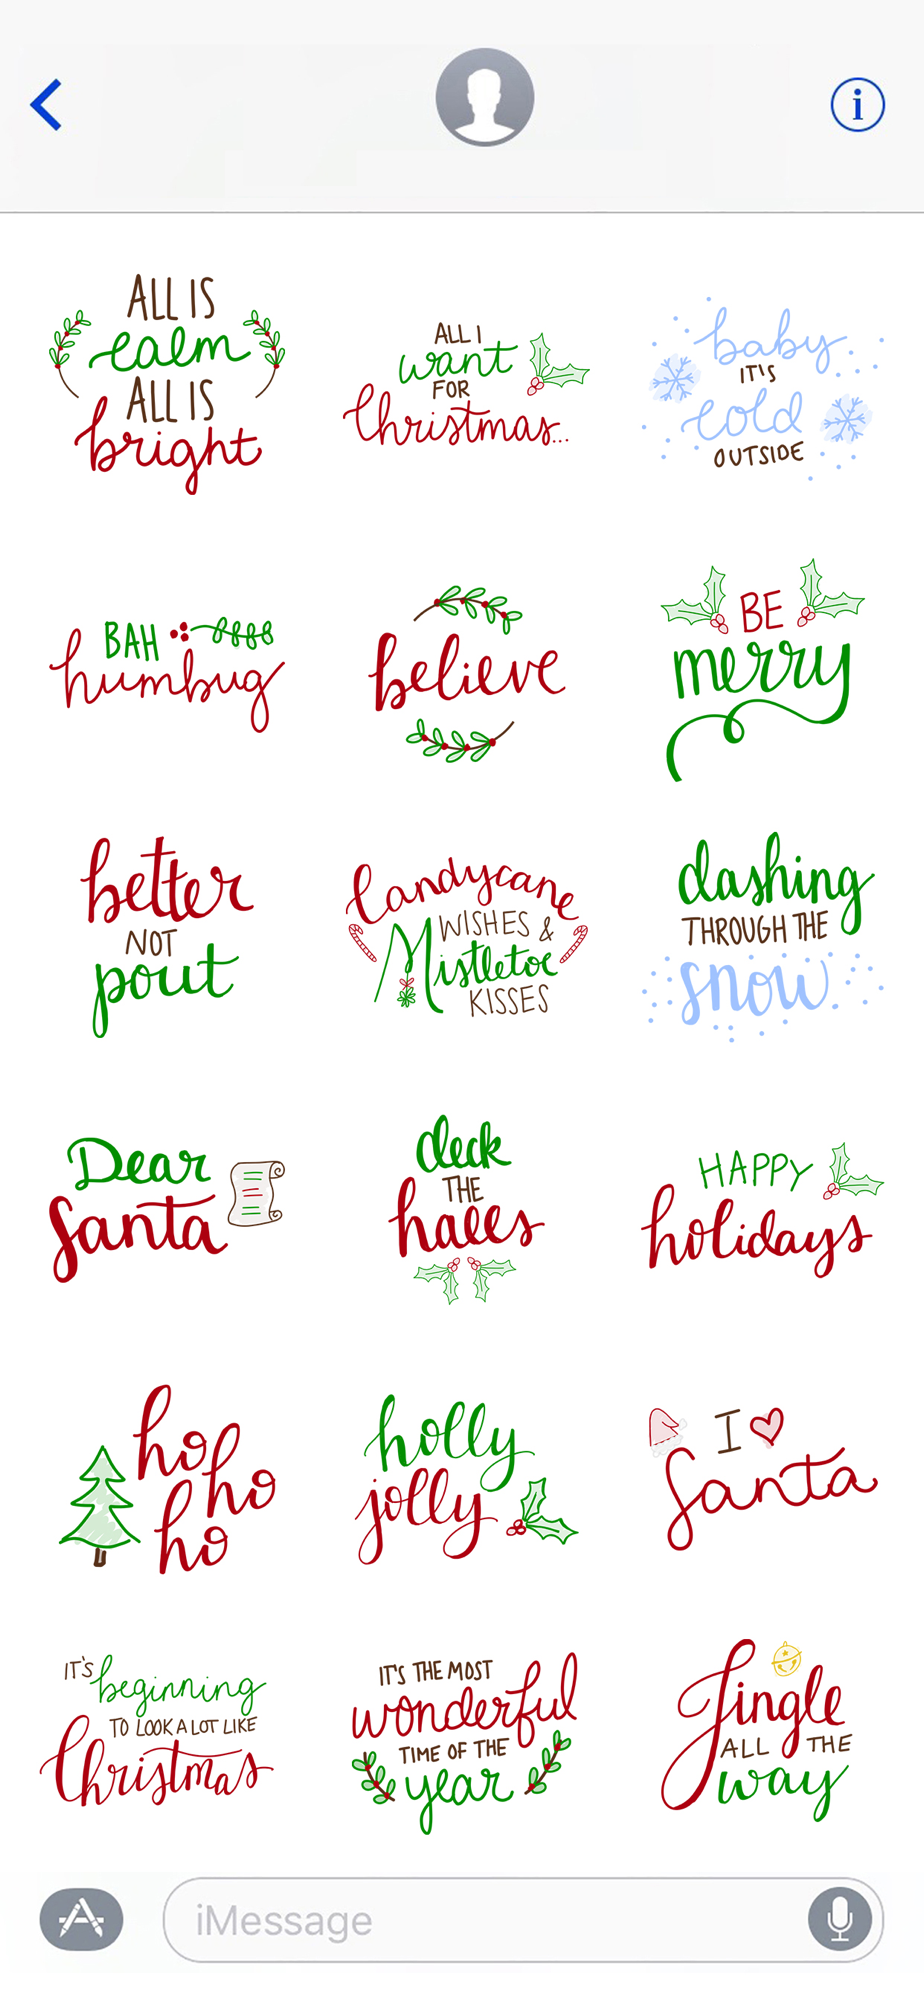 ALL IS
calm
ALL IS
bright
ALL I
want
FOR
Christmas...
baby
IT'S
cold
OUTSIDE
BAH
humbug
believe
BE
merry
better
NOT
pout
Candycane
WISHES &
Mistletoe
KISSES
dashing
THROUGH THE
snow
Dear
Santa
deck
THE
halls
HAPPY
holidays
ho
ho
ho
holly
jolly
I
Santa
IT'S
beginning
TO LOOK A LOT LIKE
Christmas
IT'S THE MOST
wonderful
TIME OF THE
year
Jingle
ALL THE
way
iMessage